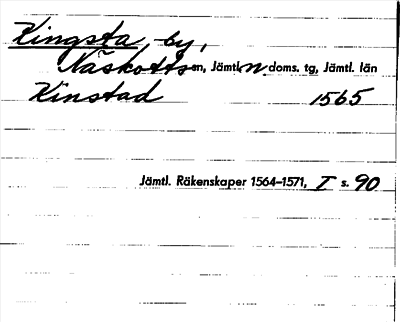 Kingsta by,
Näskotts sn, Jämtl. n. doms. tg, Jämtl. län
Kinstad 1565
Jämtl. Räkenskaper 1564–1571, I s. 90